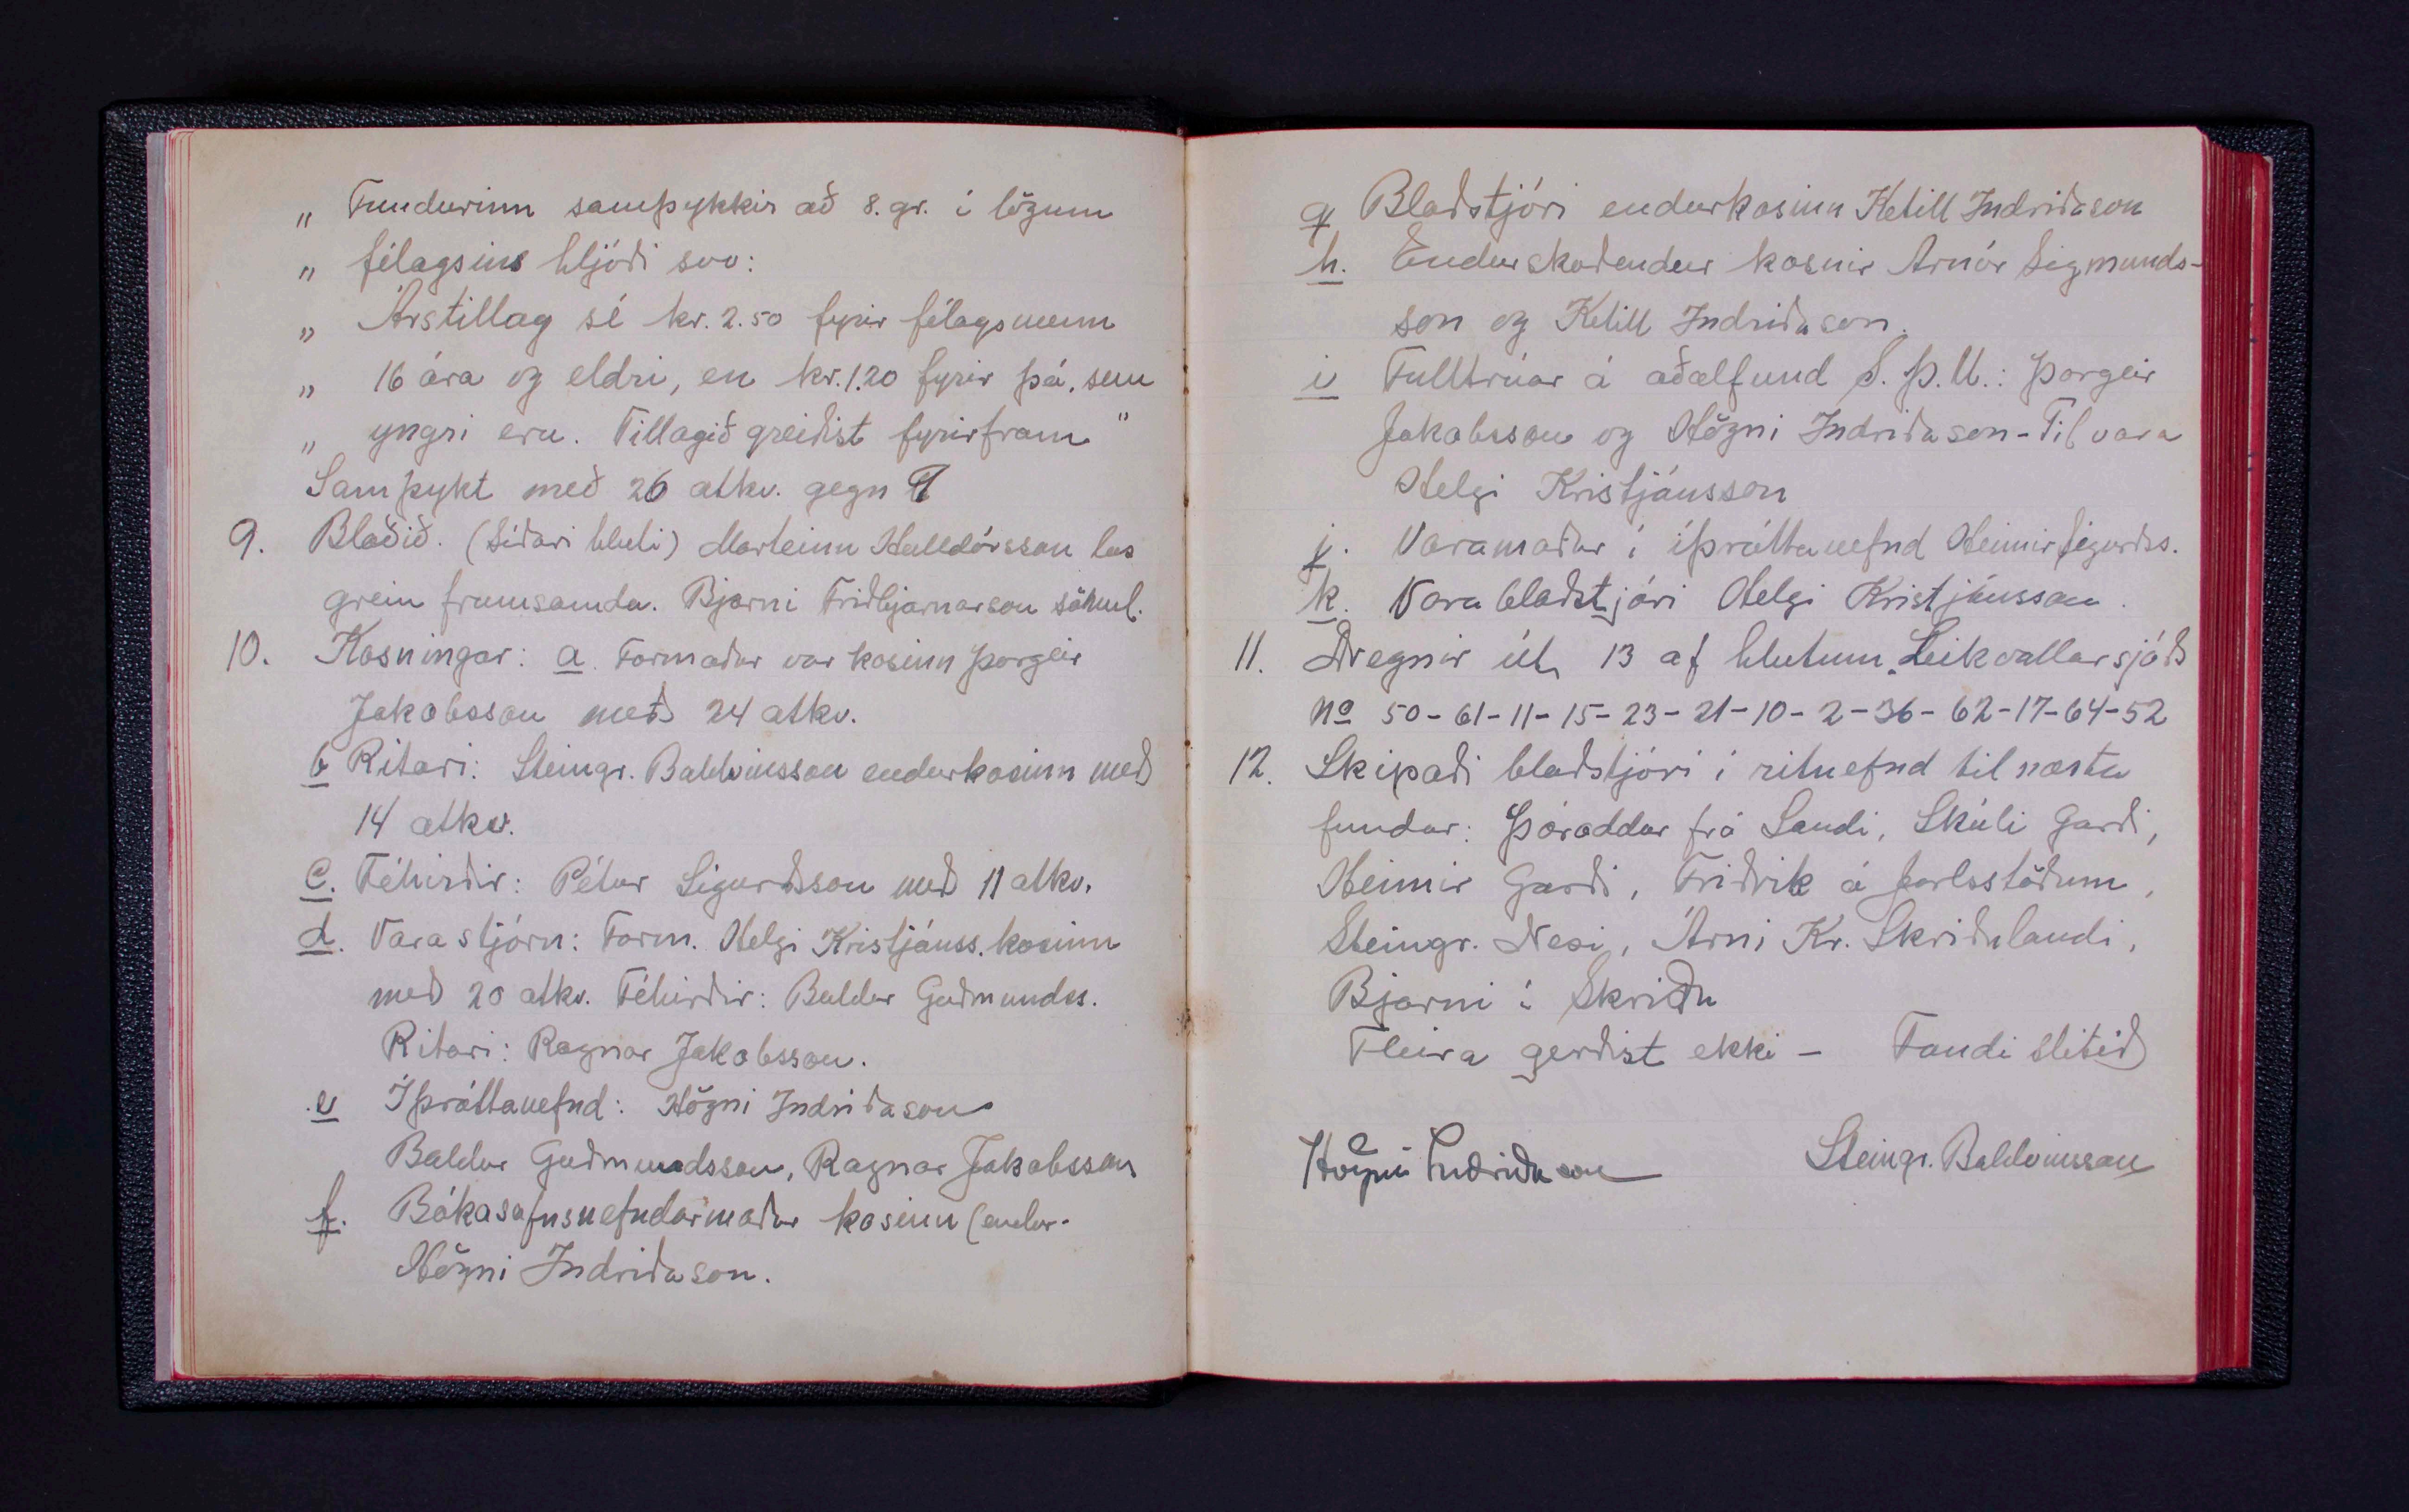 „ Fundurinn samþykkir að 8. gr. í lögum
„ félagsins hljóði svo:
„ Árstillag sé kr. 2.50 fyrir félagsmenn
„ 16 ára og eldri, en kr. 1.20 fyrir þá, sem
„ yngri eru. Tillagið greiðist fyrirfram"
Samþykt með 26 atkv. gegn
9. Blaðið. (Síðari hluti) Marteinn Halldórsson las
grein frumsamda. Bjarni Friðbjarnarson sömul.
10. Kosningar: a. Formaður var kosinn Þorgeir
Jakobsson með 24 atkv.
b Ritari: Steingr. Baldvinsson endurkosinn með
14 atkv.
c. Féhirðir: Pétur Sigurðsson með 11 atkv.
d. Varastjórn: Form. Helgi Kristjánss. kosinn
með 20 atkv. Féhirðir: Baldur Guðmundss.
Ritari: Ragnar Jakobsson.
e Íþróttanefnd: Högni Indriðason
Baldur Guðmundsson, Ragnar Jakobsson
f. Bókasafnsnefndarmaður kosinn (endur-
Högni Indriðason.
g Blaðstjóri endurkosinn Ketill Indriðason
h. Endurskoðendur kosnir Arnór Sigmunds-
son og Ketill Indriðason.
i Fulltrúar á aðalfund S.Þ.U.: Þorgeir
Jakobsson og Högni Indriðason - Til vara
Helgi Kristjánsson
j. Varamaður í íþróttanefnd Heimir Sigurðss.
k. Varablaðstjóri Helgi Kristjánsson.
11. Dregnir út 13 af hlutum Leikvallarsjóðs
No 50-61-11-15-23-21-10-2-36-62-17-64-52
12. Skipaði blaðstjóri í ritnefnd til næsta
fundar: Þóroddur frá Sandi, Skúli Garði,
Heimir Garði, Friðrik á Jarlsstöðum,
Steingr. Nesi, Árni Kr. Skriðulandi,
Bjarni í Skriðu
Fleira gerðist ekki - Fundi slitið
Högni Indriðason Steingr. Baldvinsson